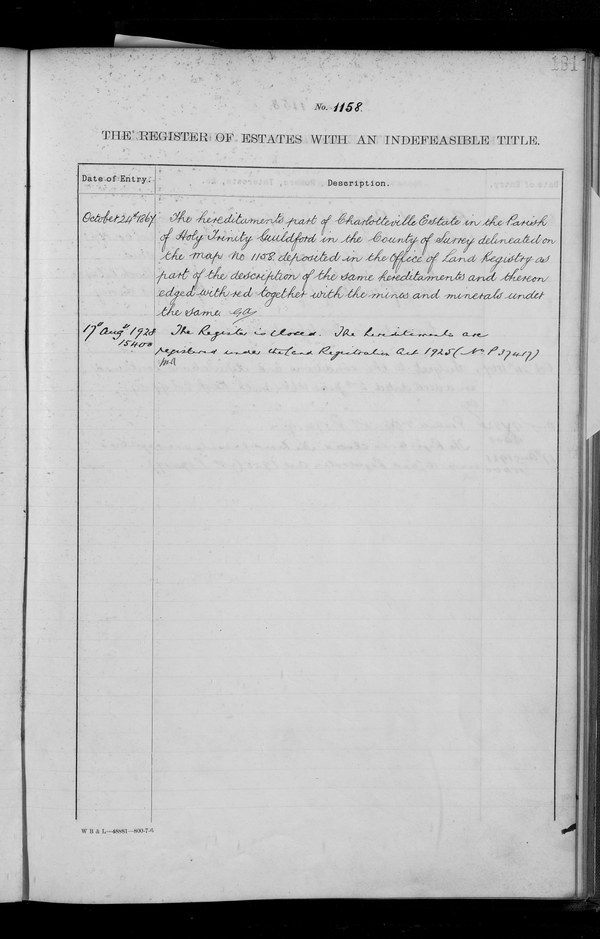 181
No. 1158.
THE REGISTER OF ESTATES WITH AN INDEFEASIBLE TITLE.
Date of Entry.
Description.
October 24th 1867
The hereditaments part of Charlotteville Estate in the Parish
of Holy Trinity Guildford in the County of Surrey delineated on
the map No 1158 deposited in the Office of Land Registry as
part of the description of the same hereditaments and thereon
edged with red together with the mines and minerals under
the same.
17th Augt 1928
The Register is closed. The hereditaments are
registered under the Land Registration Act 1925 (No P 37457)
W B & L—48883—800-7-6